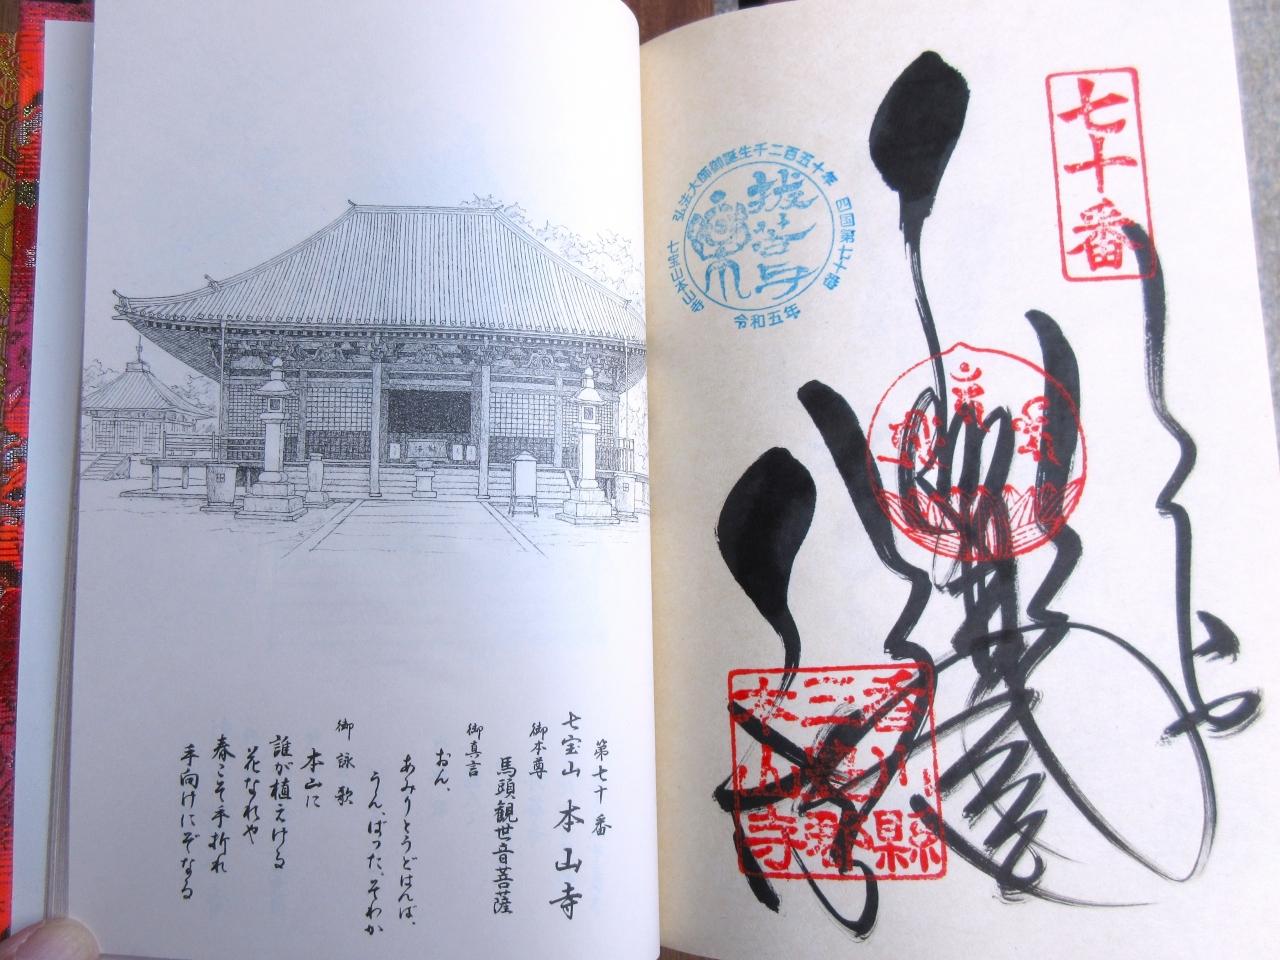 第七十番
七宝山 本山寺
御本尊
馬頭観世音菩薩
御真言
おん、
あみりとうどはんば、
うん、ばった、そわか
御詠歌
本山に
誰が植えける
花なれや
春こそ手折れ
手向けにぞなる
七十番
弘法大師御誕生千二百五十年
四国第七十番
七宝山本山寺
令和五年
香川県
三豊郡
本山寺